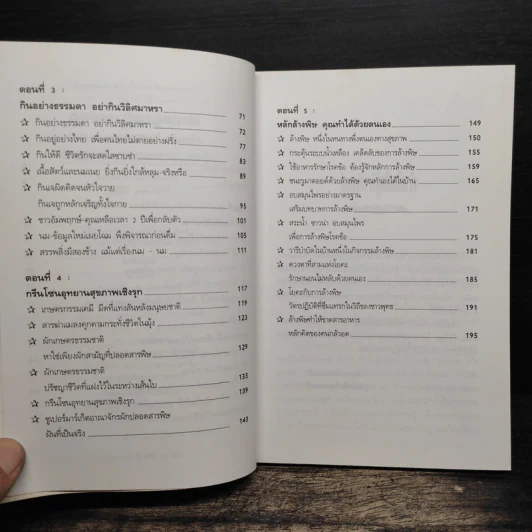 ตอนที่ 3 :
กินอย่างธรรมดา อย่ากินวิลิศมาหรา 71
☆ กินอย่างธรรมดา อย่ากินวิลิศมาหรา 72
☆ กินอยู่อย่างไทย เพื่อคนไทยไม่ตายอย่างฝรั่ง 77
☆ กินให้ดี ชีวิตรักจะสดใสซาบซ่า 83
☆ เนื้อสัตว์และนมเนย ยิ่งกินยิ่งใกล้หลุม-จริงหรือ 89
☆ กินเจผิดคิดจนหัวใจวาย
กินเจถูกหลักเจริญทั้งใจกาย 95
☆ ชาวอัมพฤกษ์-คุณเหลือเวลา 2 ปีเพื่อกลับตัว 103
☆ นม-ข้อมูลใหม่เผยโฉม พึงพิจารณาก่อนดื่ม 105
☆ สรรพสิ่งมีสองข้าง แม้แต่เรื่องนม - นม 113
ตอนที่ 4 :
กรีนโซนอุทยานสุขภาพเชิงรุก 117
☆ เกษตรกรรมเคมี มีดที่แทงสันหลังมนุษยชาติ 119
☆ สารฆ่าแมลงคุกคามกระทั่งชีวิตในมุ้ง 123
☆ ผักเกษตรธรรมชาติ
หาใช่เพียงผักสามัญที่ปลอดสารพิษ 129
☆ ผักเกษตรธรรมชาติ
ปรัชญาชีวิตที่แฝงไว้ในระหว่างเส้นใบ 133
☆ กรีนโซนอุทยานสุขภาพเชิงรุก 139
☆ ซูเปอร์มาร์เก็ตอาณาจักรผักปลอดสารพิษ
ฝันที่เป็นจริง 143
ตอนที่ 5 :
หลักล้างพิษ คุณทำได้ด้วยตนเอง 149
☆ ล้างพิษ หนึ่งในหนทางพึ่งตนเองทางสุขภาพ 150
☆ กระตุ้นระบบน้ำเหลือง เคล็ดลับของการล้างพิษ 155
☆ ใช้อาหารรักษาโรคข้อ ต้องรู้จักหลักการล้างพิษ 159
☆ ชนะรูมาตอยด์ด้วยล้างพิษ คุณทำเองได้ในบ้าน 165
☆ อบสมุนไพรอย่างมาตรฐาน
เสริมบทบาทการล้างพิษ 171
☆ สระน้ำ ซาวน่า อบสมุนไพร
เพื่อการล้างพิษโรคข้อ 175
☆ วารีบำบัดในบ้านหนึ่งในกิจกรรมล้างพิษ 181
☆ ดวงตาที่สามแห่งโยคะ
รักษานอนไม่หลับด้วยตนเอง 185
☆ โยคะกับการล้างพิษ
วัตรปฏิบัติที่ซึมแทรกในวิถีของชาวพุทธ 187
☆ ล้างพิษทำให้ขาดสารอาหาร
หลักคิดของคนกลัวอด 195